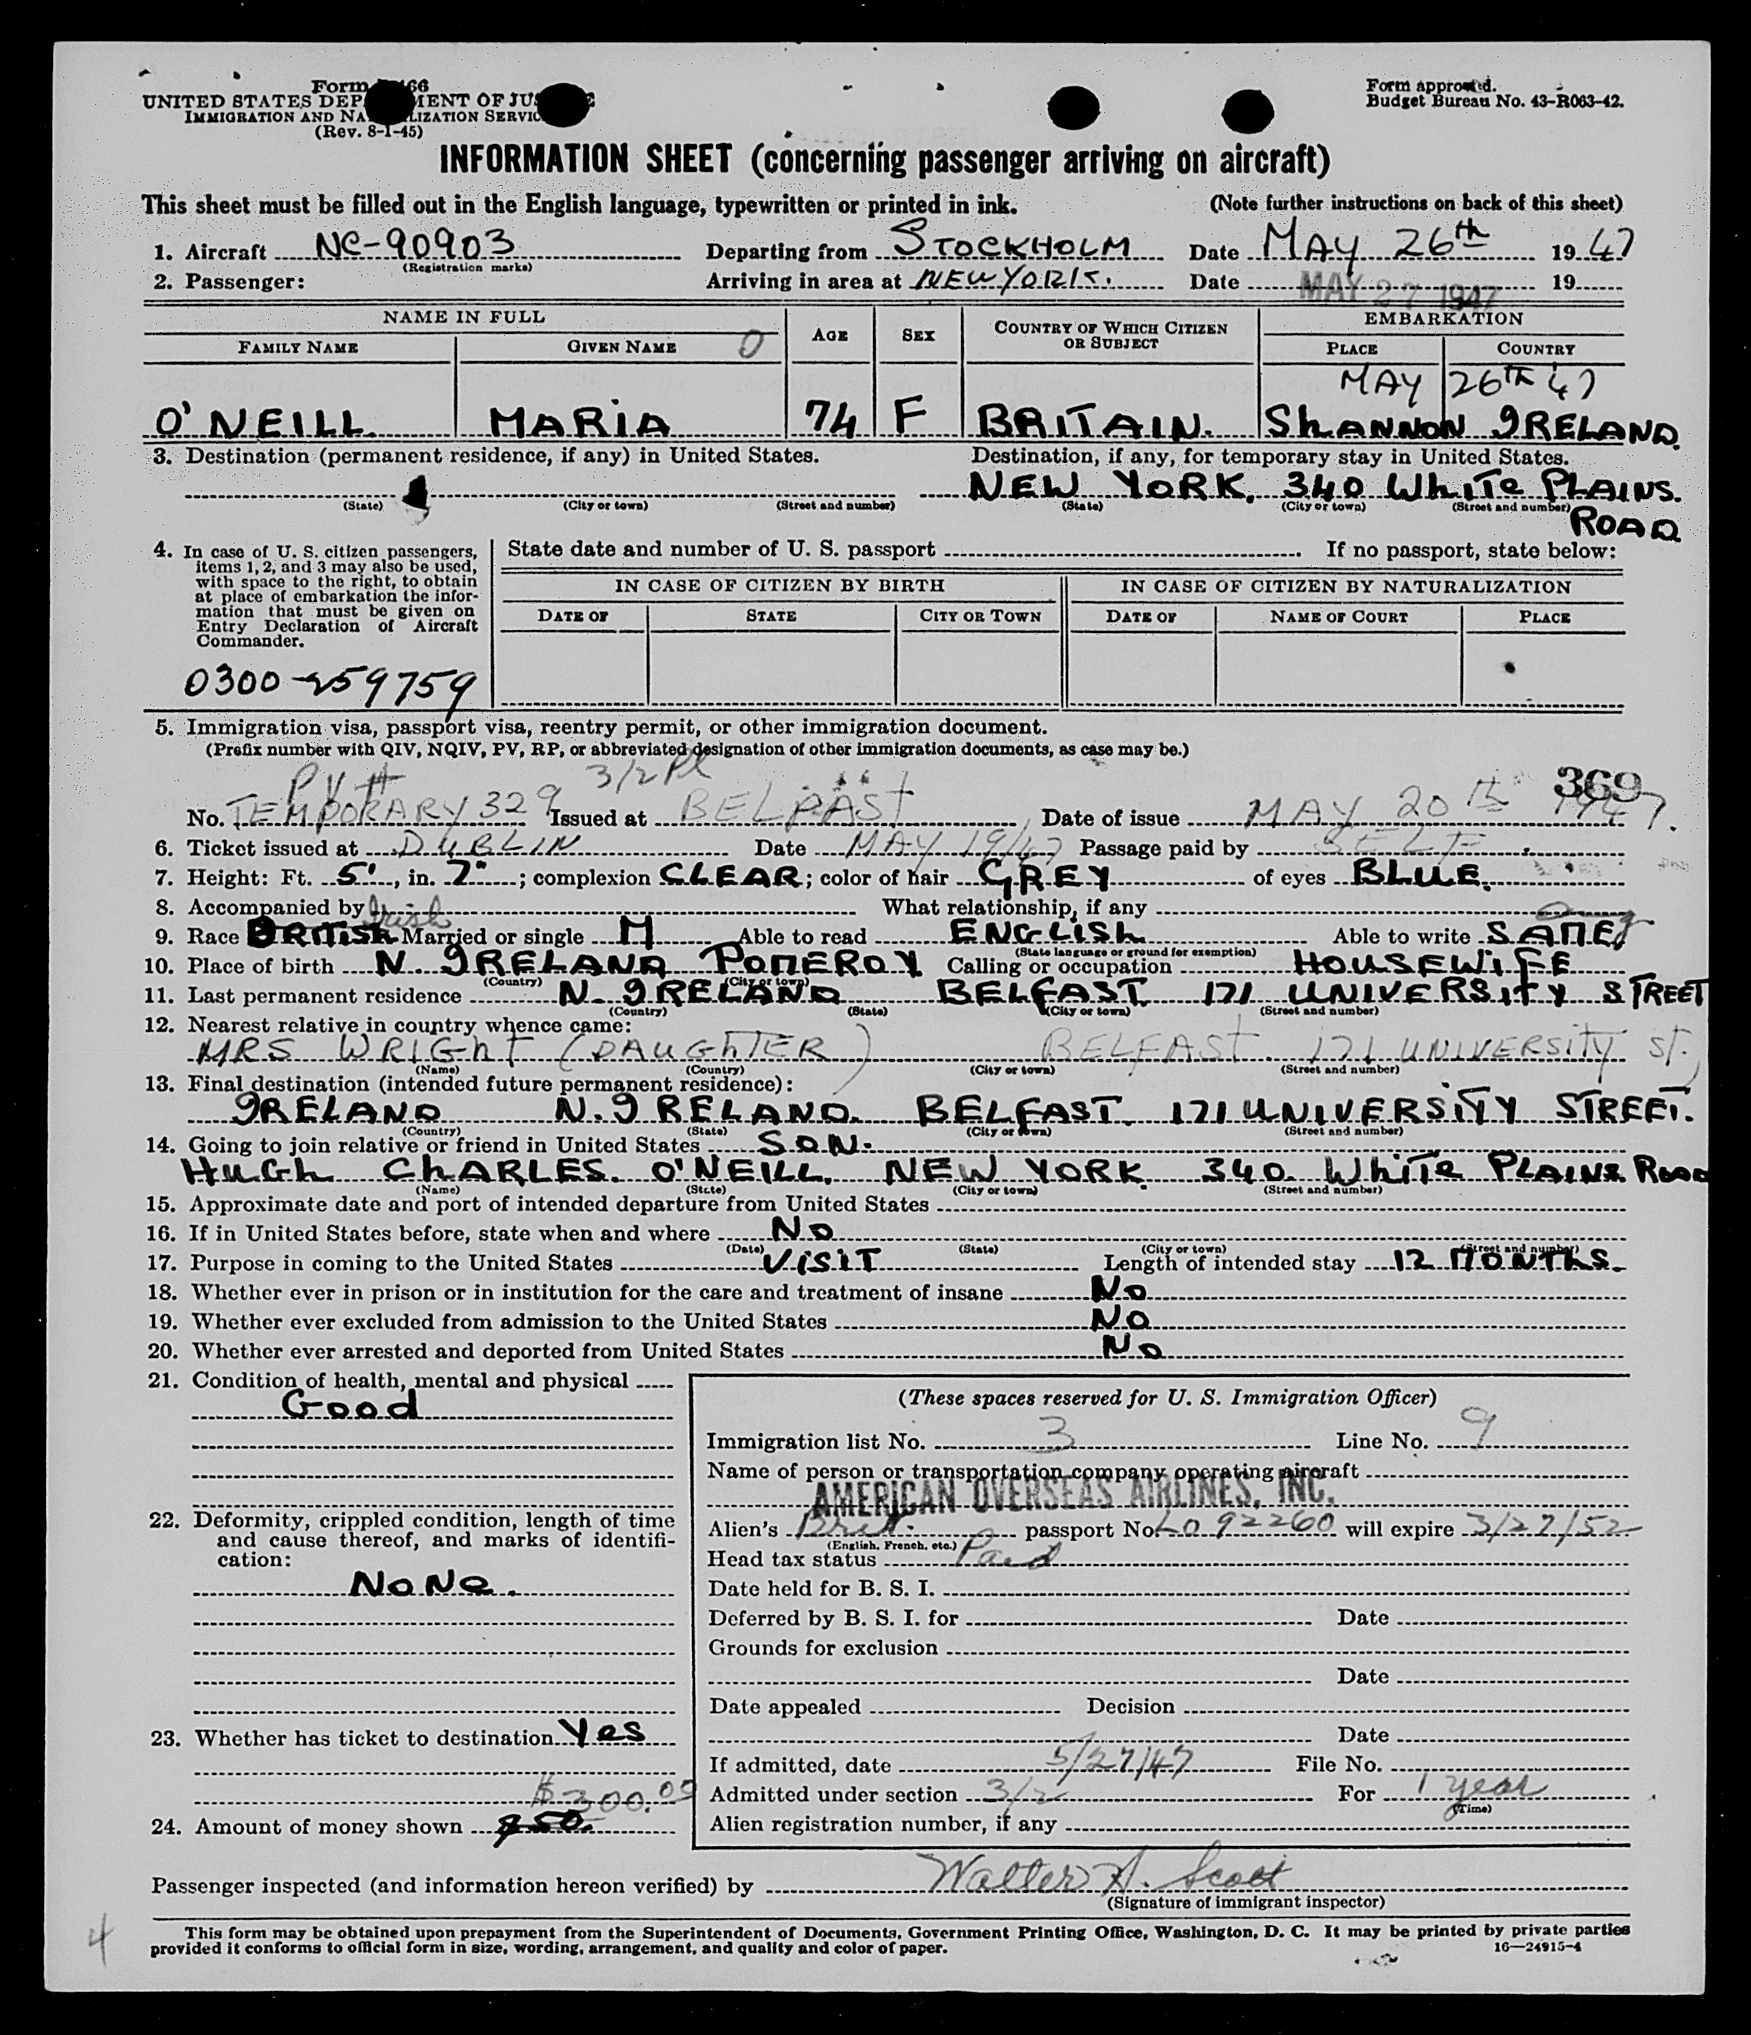 Form 66
UNITED STATES DEP MENT OF JUS E
IMMIGRATION AND NA LIZATION SERVIC
(Rev. 8-1-45)
Form approved.
Budget Bureau No. 43-R063-42.
INFORMATION SHEET (concerning passenger arriving on aircraft)
This sheet must be filled out in the English language, typewritten or printed in ink. (Note further instructions on back of this sheet)
1. Aircraft NC-90903 Departing from STOCKHOLM Date MAY 26th 1947
(Registration marks)
2. Passenger: Arriving in area at NEW YORK. Date MAY 27 1947 19
NAME IN FULL AGE SEX COUNTRY OF WHICH CITIZEN OR SUBJECT EMBARKATION
FAMILY NAME GIVEN NAME O PLACE COUNTRY
MAY 26TH 47
O'NEILL MARIA 74 F BRITAIN. SHANNON IRELAND.
3. Destination (permanent residence, if any) in United States. Destination, if any, for temporary stay in United States.
NEW YORK. 340 WHITE PLAINS.
(State) (City or town) (Street and number) (State) (City or town) (Street and number)
ROAD
4. In case of U. S. citizen passengers, items 1, 2, and 3 may also be used, with space to the right, to obtain at place of embarkation the information that must be given on Entry Declaration of Aircraft Commander.
State date and number of U. S. passport . If no passport, state below:
IN CASE OF CITIZEN BY BIRTH IN CASE OF CITIZEN BY NATURALIZATION
DATE OF STATE CITY OR TOWN DATE OF NAME OF COURT PLACE
0300-259759
5. Immigration visa, passport visa, reentry permit, or other immigration document.
(Prefix number with QIV, NQIV, PV, RP, or abbreviated designation of other immigration documents, as case may be.)
PV # 3/2 PL 369
No. TEMPORARY 329 Issued at BELFAST Date of issue MAY 20th 1947.
6. Ticket issued at DUBLIN Date MAY 19/47 Passage paid by SELF
7. Height: Ft. 5', in. 7"; complexion CLEAR; color of hair GREY of eyes BLUE.
8. Accompanied by What relationship, if any
Irish
9. Race BRITISH Married or single M Able to read ENGLISH Able to write SAME
(State language or ground for exemption)
10. Place of birth N. IRELAND POMEROY Calling or occupation HOUSEWIFE
(Country) (City or town)
11. Last permanent residence N. IRELAND BELFAST 171 UNIVERSITY STREET
(Country) (State) (City or town) (Street and number)
12. Nearest relative in country whence came:
MRS WRIGHT (DAUGHTER) BELFAST. 171 UNIVERSITY St.
(Name) (Country) (City or town) (Street and number)
13. Final destination (intended future permanent residence):
IRELAND N. IRELAND. BELFAST. 171 UNIVERSITY STREET.
(Country) (State) (City or town) (Street and number)
14. Going to join relative or friend in United States SON.
HUGH CHARLES. O'NEILL. NEW YORK. 340. WHITE PLAINS ROAD
(Name) (State) (City or town) (Street and number)
15. Approximate date and port of intended departure from United States
16. If in United States before, state when and where NO
(Date) (State) (City or town) (Street and number)
17. Purpose in coming to the United States VISIT Length of intended stay 12 MONTHS.
18. Whether ever in prison or in institution for the care and treatment of insane NO
19. Whether ever excluded from admission to the United States NO
20. Whether ever arrested and deported from United States NO
21. Condition of health, mental and physical
Good
22. Deformity, crippled condition, length of time and cause thereof, and marks of identification:
NONe.
23. Whether has ticket to destination Yes
$300.00
24. Amount of money shown $50.
(These spaces reserved for U. S. Immigration Officer)
Immigration list No. 3 Line No. 9
Name of person or transportation company operating aircraft
AMERICAN OVERSEAS AIRLINES, INC.
Alien's Brit. passport No. LO 92260 will expire 3/27/52
(English, French, etc.)
Head tax status Paid
Date held for B. S. I.
Deferred by B. S. I. for Date
Grounds for exclusion
Date
Date appealed Decision
Date
If admitted, date 5/27/47 File No.
Admitted under section 3/2 For 1 year
(Time)
Alien registration number, if any
Passenger inspected (and information hereon verified) by Walter A. Scott
(Signature of immigrant inspector)
4
This form may be obtained upon prepayment from the Superintendent of Documents, Government Printing Office, Washington, D. C. It may be printed by private parties
provided it conforms to official form in size, wording, arrangement, and quality and color of paper. 16—24915-4